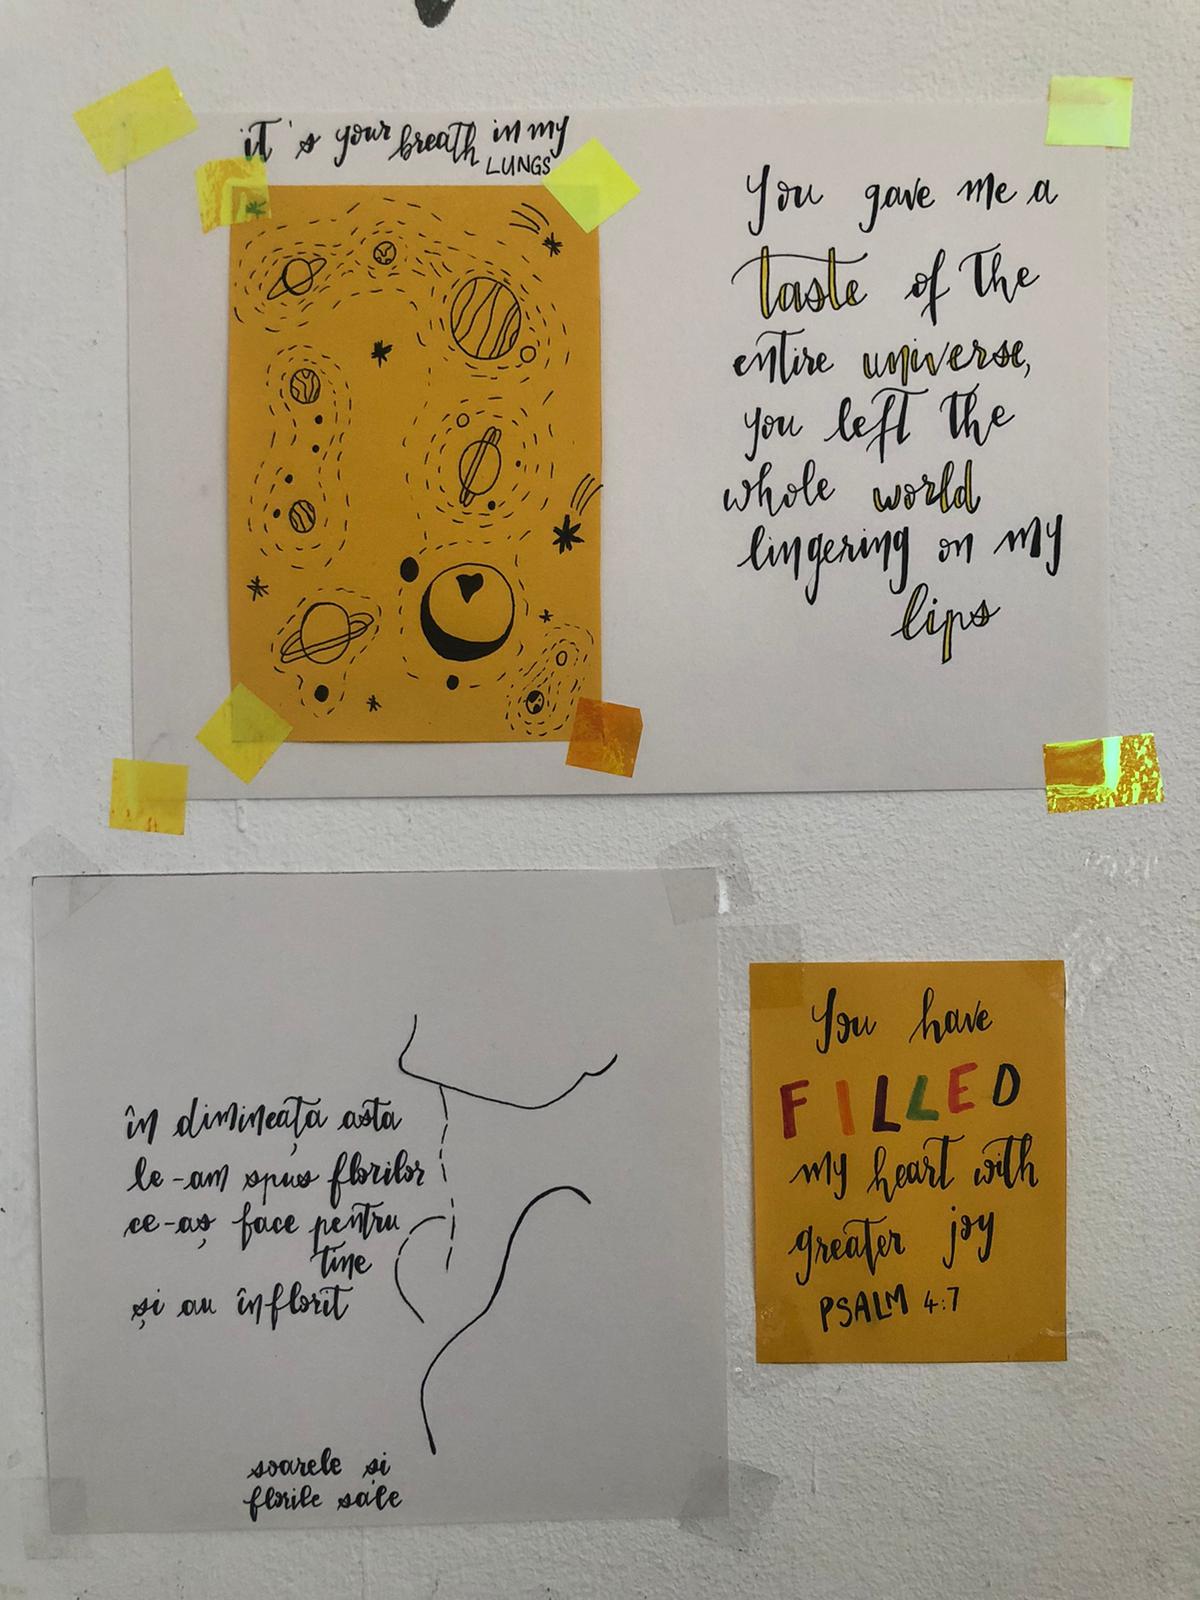 it's your breath in my
LUNGS
You gave me a
taste of the
entire universe,
you left the
whole world
lingering on my
lips
în dimineața asta
le-am spus florilor
ce-aș face pentru
tine
și au înflorit
soarele și
florile sale
You have
FILLED
my heart with
greater joy
PSALM 4:7